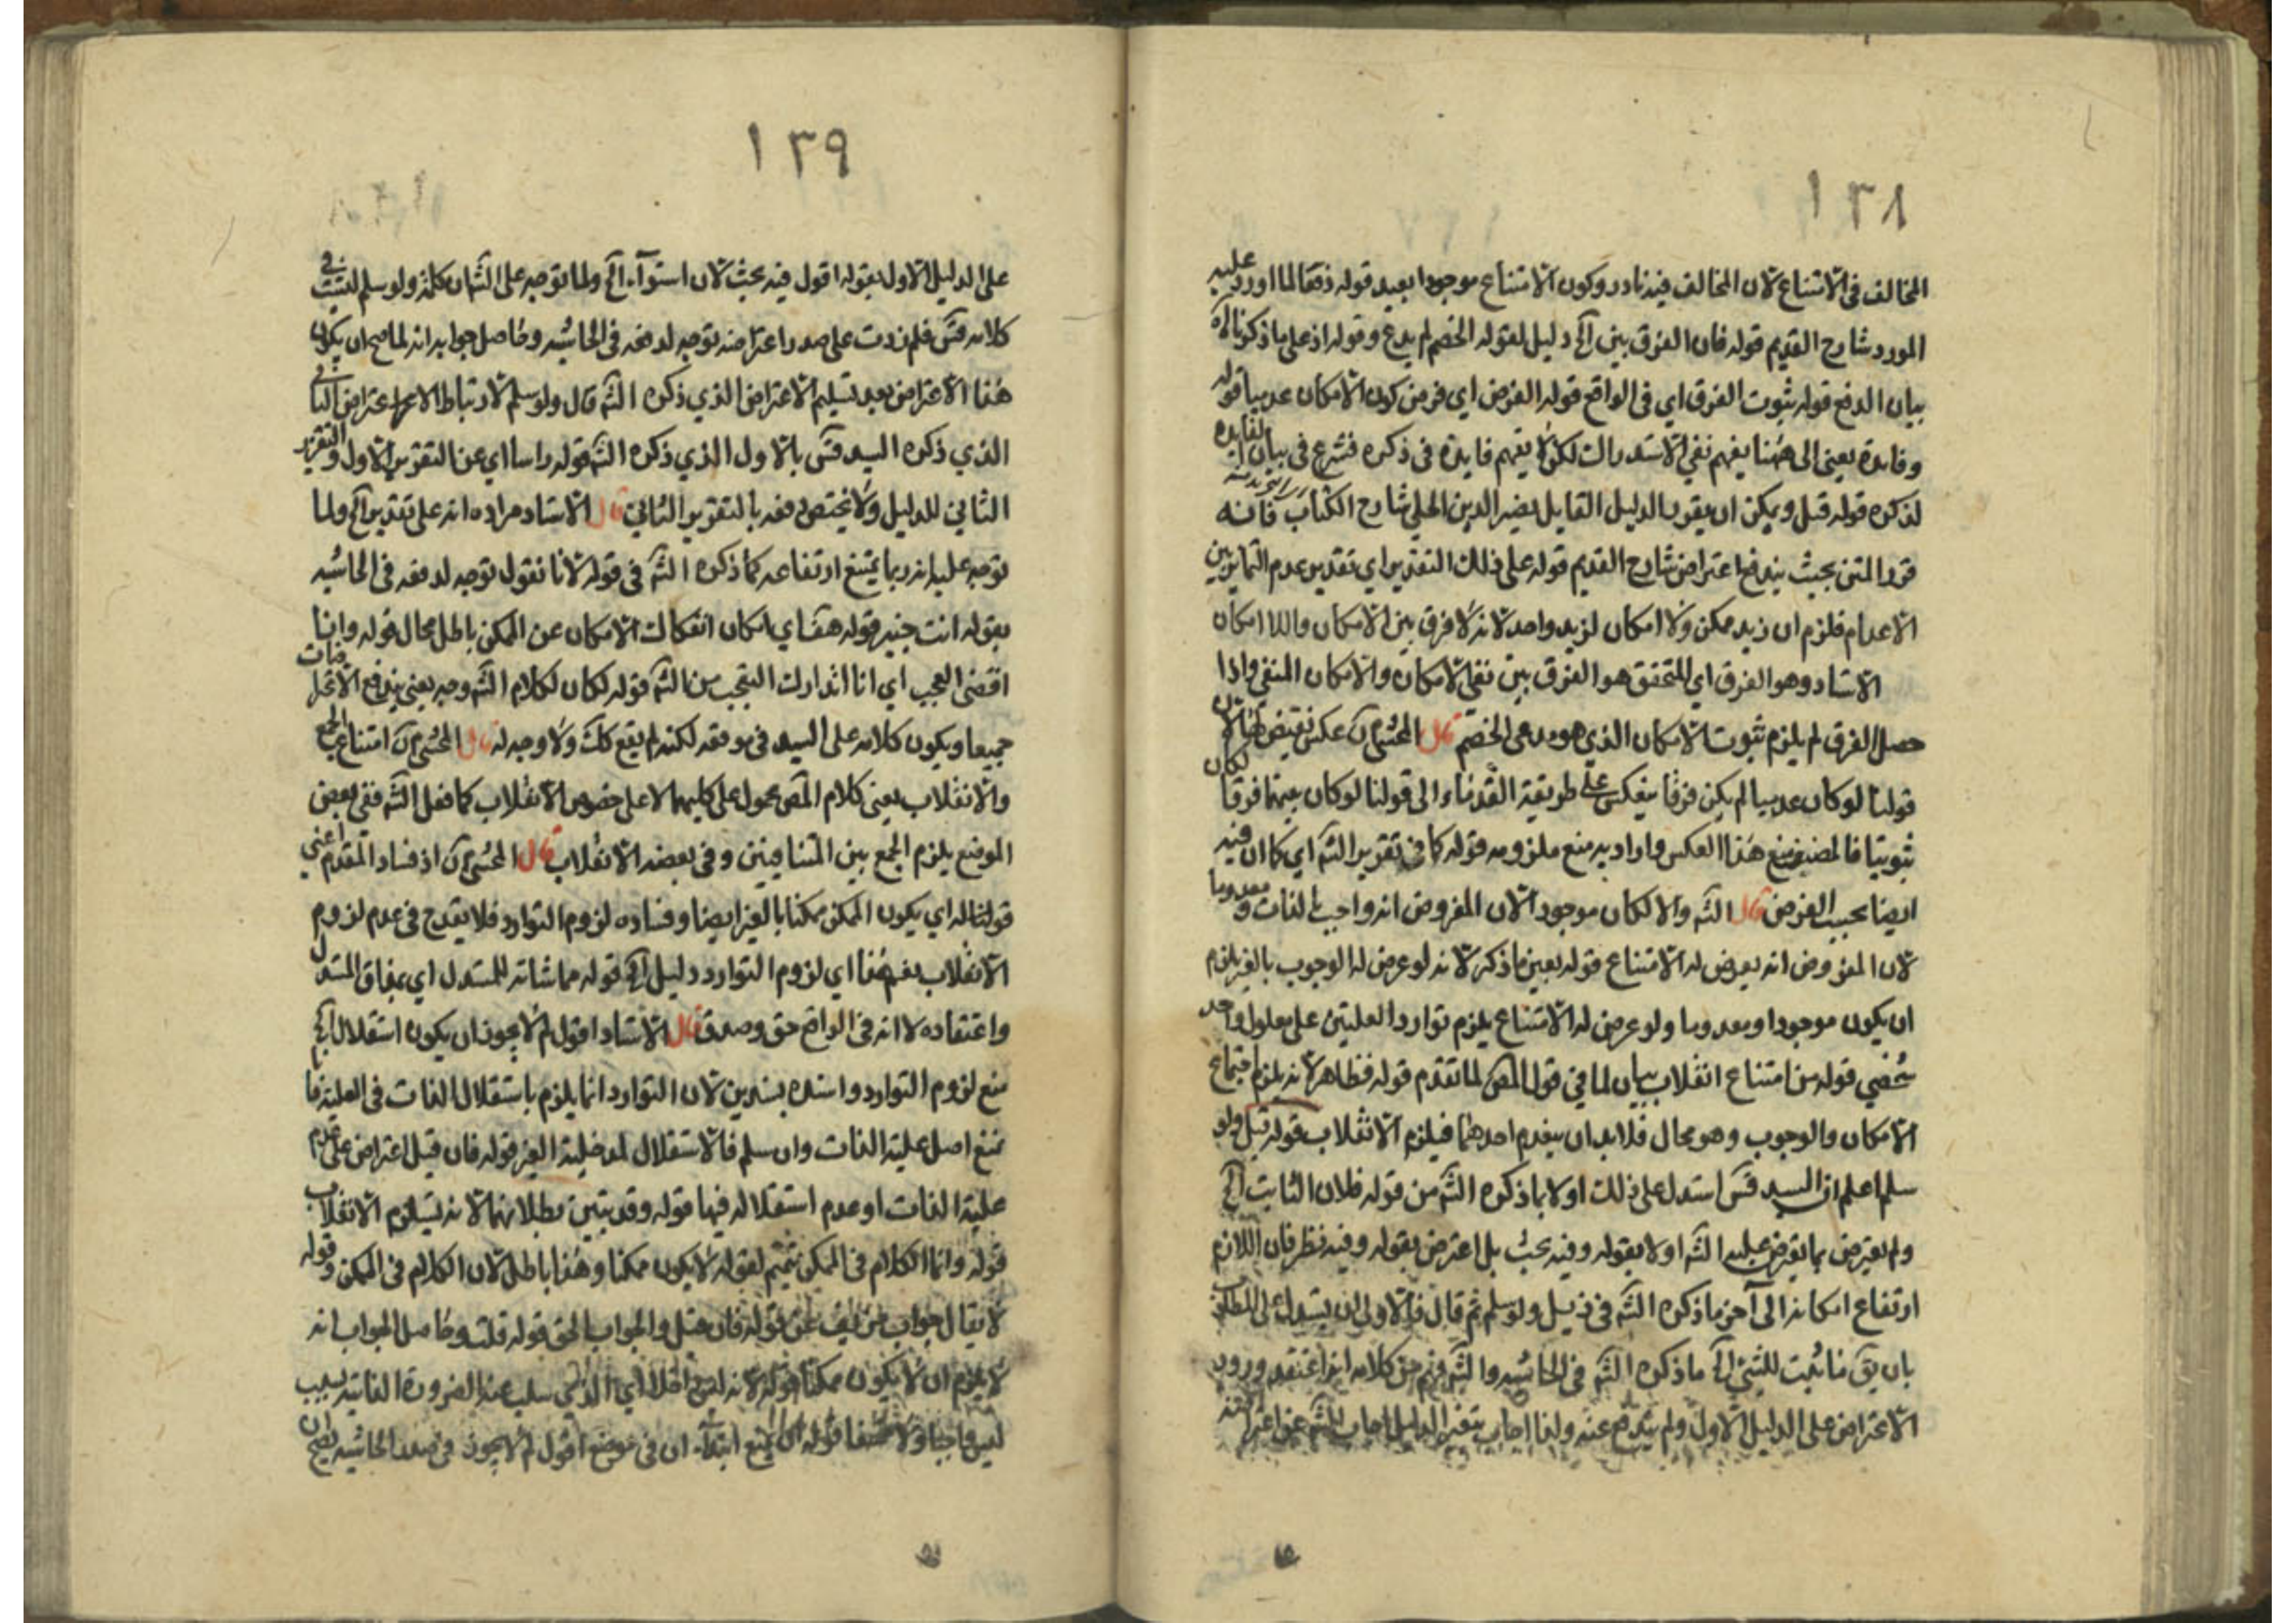 ١٣٨
المخالف في الامتناع لان المخالف فيه نادر وكون الامتناع موجودا بعيد قوله دفعا لما اورد عليه
المورد شارح القديم قوله فان الفرق بين آلخ دليل لقوله الخصم لم يدع وقوله اذ على ما ذكرنا
بيان الدفع قوله ثبوت الفرق اي في الواقع قوله الفرض اي فرض كون الامكان عدميا قوله
وفايدة يعني الى ههنا يفهم نفي الاستدراك لكن لا يفهم فايدة في ذكره فشرع في بيان الفايدة
لذكره قوله قيل ويمكن ان يقرر الدليل القايل نصير الدين الحلي شارح الكتاب فانه
قرر المتن بحيث يندفع اعتراض شارح القديم قوله على ذلك التقدير اي تقدير عدم التمايز بين
الاعدام فلزم ان زيد ممكن ولا امكان لزيد واحد لانه لا فرق بين الامكان واللا امكان
الاستاد وهو الفرق اي المتحقق هو الفرق بين نفي الامكان والامكان المنفي واذا
حصل الفرق لم يلزم ثبوت الامكان الذي هو مدعى الخصم قال المحشي آن عكس نقيض لان
قولنا لو كان عدميا لم يكن فرقا ينعكس على طريقة القدماء الى قولنا لو كان بينهما فرقا لكان
ثبوتيا فالمصنف منع هذا العكس واراد به منع ملزومه قوله كما في تقرير الشه اي كما ان فيه
ايضا بحسب الفرض قال الشه والا لكان موجود الان المفروض انه واجب بالذات ومعدوما
لان المفروض انه يعرض له الامتناع قوله بعين ما ذكر لانه لو عرض له الوجوب بالغير يلزم
ان يكون موجودا ومعدوما ولو عرض له الامتناع يلزم توارد العلتين على معلول واحد
شخصي قوله من امتناع انقلاب بيان لما في قول المص لما تقدم قوله فظاهر لانه يلزم اجتماع
الامكان والوجوب وهو محال فلا بد ان ينعدم احدهما فيلزم الانقلاب قوله قيل ولو
سلم اعلم ان السيد قس استدل على ذلك اولا بما ذكره الشه من قوله فلان الثابت آلخ
ولم يعترض بما تعرض عليه الشه اولا بقوله وفيه بحث بل اعترض بقوله وفيه نظر فان اللازم
ارتفاع امكانه الى آخر ما ذكره الشه في ذيل ولو سلم ثم قال فالاولى ان يستدل على المطلوب
بان يق ما ثبت للشيء آلخ ما ذكره الشه في الحاشيه والشه فهم من كلامه انه اعتقد ورود
الاعتراض على الدليل الاول ولم يندفع عنه ولذا اجاب بتغير الدليل اجاب الشه عن اعتراضه
١٣٩
على الدليل الاول بقوله اقول فيه بحث لان استوآء آلخ ولما توجه على الشه ان كلمة ولو سلم ليست في
كلامه قس فلم زدت على صدر اعتراضه توجه لدفعه في الحاشيه وحاصل جوابه انه لما صح ان يكون
هذا الاعتراض بعد تسليم الاعتراض الذي ذكره الشه قال ولو سلم لارتباط الاعتراض الثاني
الذي ذكره السيد قس بالاول الذي ذكره الشه قوله راسا اي عن التقرير الاول والتقرير
الثاني للدليل ولا يختص دفعه بالتقرير الثاني قال الاستاد مراده انه على تقدير آلخ ولما
توجه عليه انه ربما يمتنع ارتفاعه كما ذكره الشه في قوله لانا نقول توجه لدفعه في الحاشيه
بقوله انت خبير قوله هف اي امكان انفكاك الامكان عن الممكن باطل محال قوله وانما
اقتضى العجب اي انا اتدارك التعجب من الشه قوله لكان لكلام الشه وجه يعني يندفع الاتجاهات
جميعا ويكون كلامه على السيد في موقعه لكنه لم يقع كك ولا وجه له قال المحشي آن امتناع الجمع
والانقلاب يعني كلام المص محمول على كليهما لا على خصوص الانقلاب كما فعل الشه ففي بعض
الموضع يلزم الجمع بين المتنافيين وفي بعضه الانقلاب قال المحشي آن اذ فساد المقدم اعني
قولنا له اي يكون الممكن ممكنا بالغير ايضا وفساده لزوم التوارد فلا يقدح في عدم لزوم
الانقلاب بفهم هذا اي لزوم التوارد دليل آلخ قوله مماشاته للمستدل اي بمذاق المستدل
واعتقاده لا انه في الواقع حق وصدق قال الاستاد اقول لم لا يجوز ان يكون استقلال آلخ
منع لزوم التوارد واسنده بسندين لان التوارد انما يلزم باستقلال الذات في العلية
نمنع اصل علية الذات وان سلم فالاستقلال لمدخلية الغير قوله فان قيل اعتراض على عدم
علية الذات او عدم استقلاله فيها قوله وقد تبين بطلانهما لانه يستلزم الانقلاب
قوله وانما الكلام في الممكن تتميم لقوله لا يكون ممكنا وهذا باطل لان الكلام في الممكن وقوله
لا يقال جواب قوله فان قيل والجواب الحق قوله قلت وحاصل الجواب انه
لا يلزم ان لا يكون ممكنا قوله لانه ليس اي الذي سلب عنه الضرورة الذاتية بسبب
ليس واجبا ولا ممتنعا قوله منع ابتداء ان في موضع اقول لم لا يجوز في صدر الحاشيه يصح ان